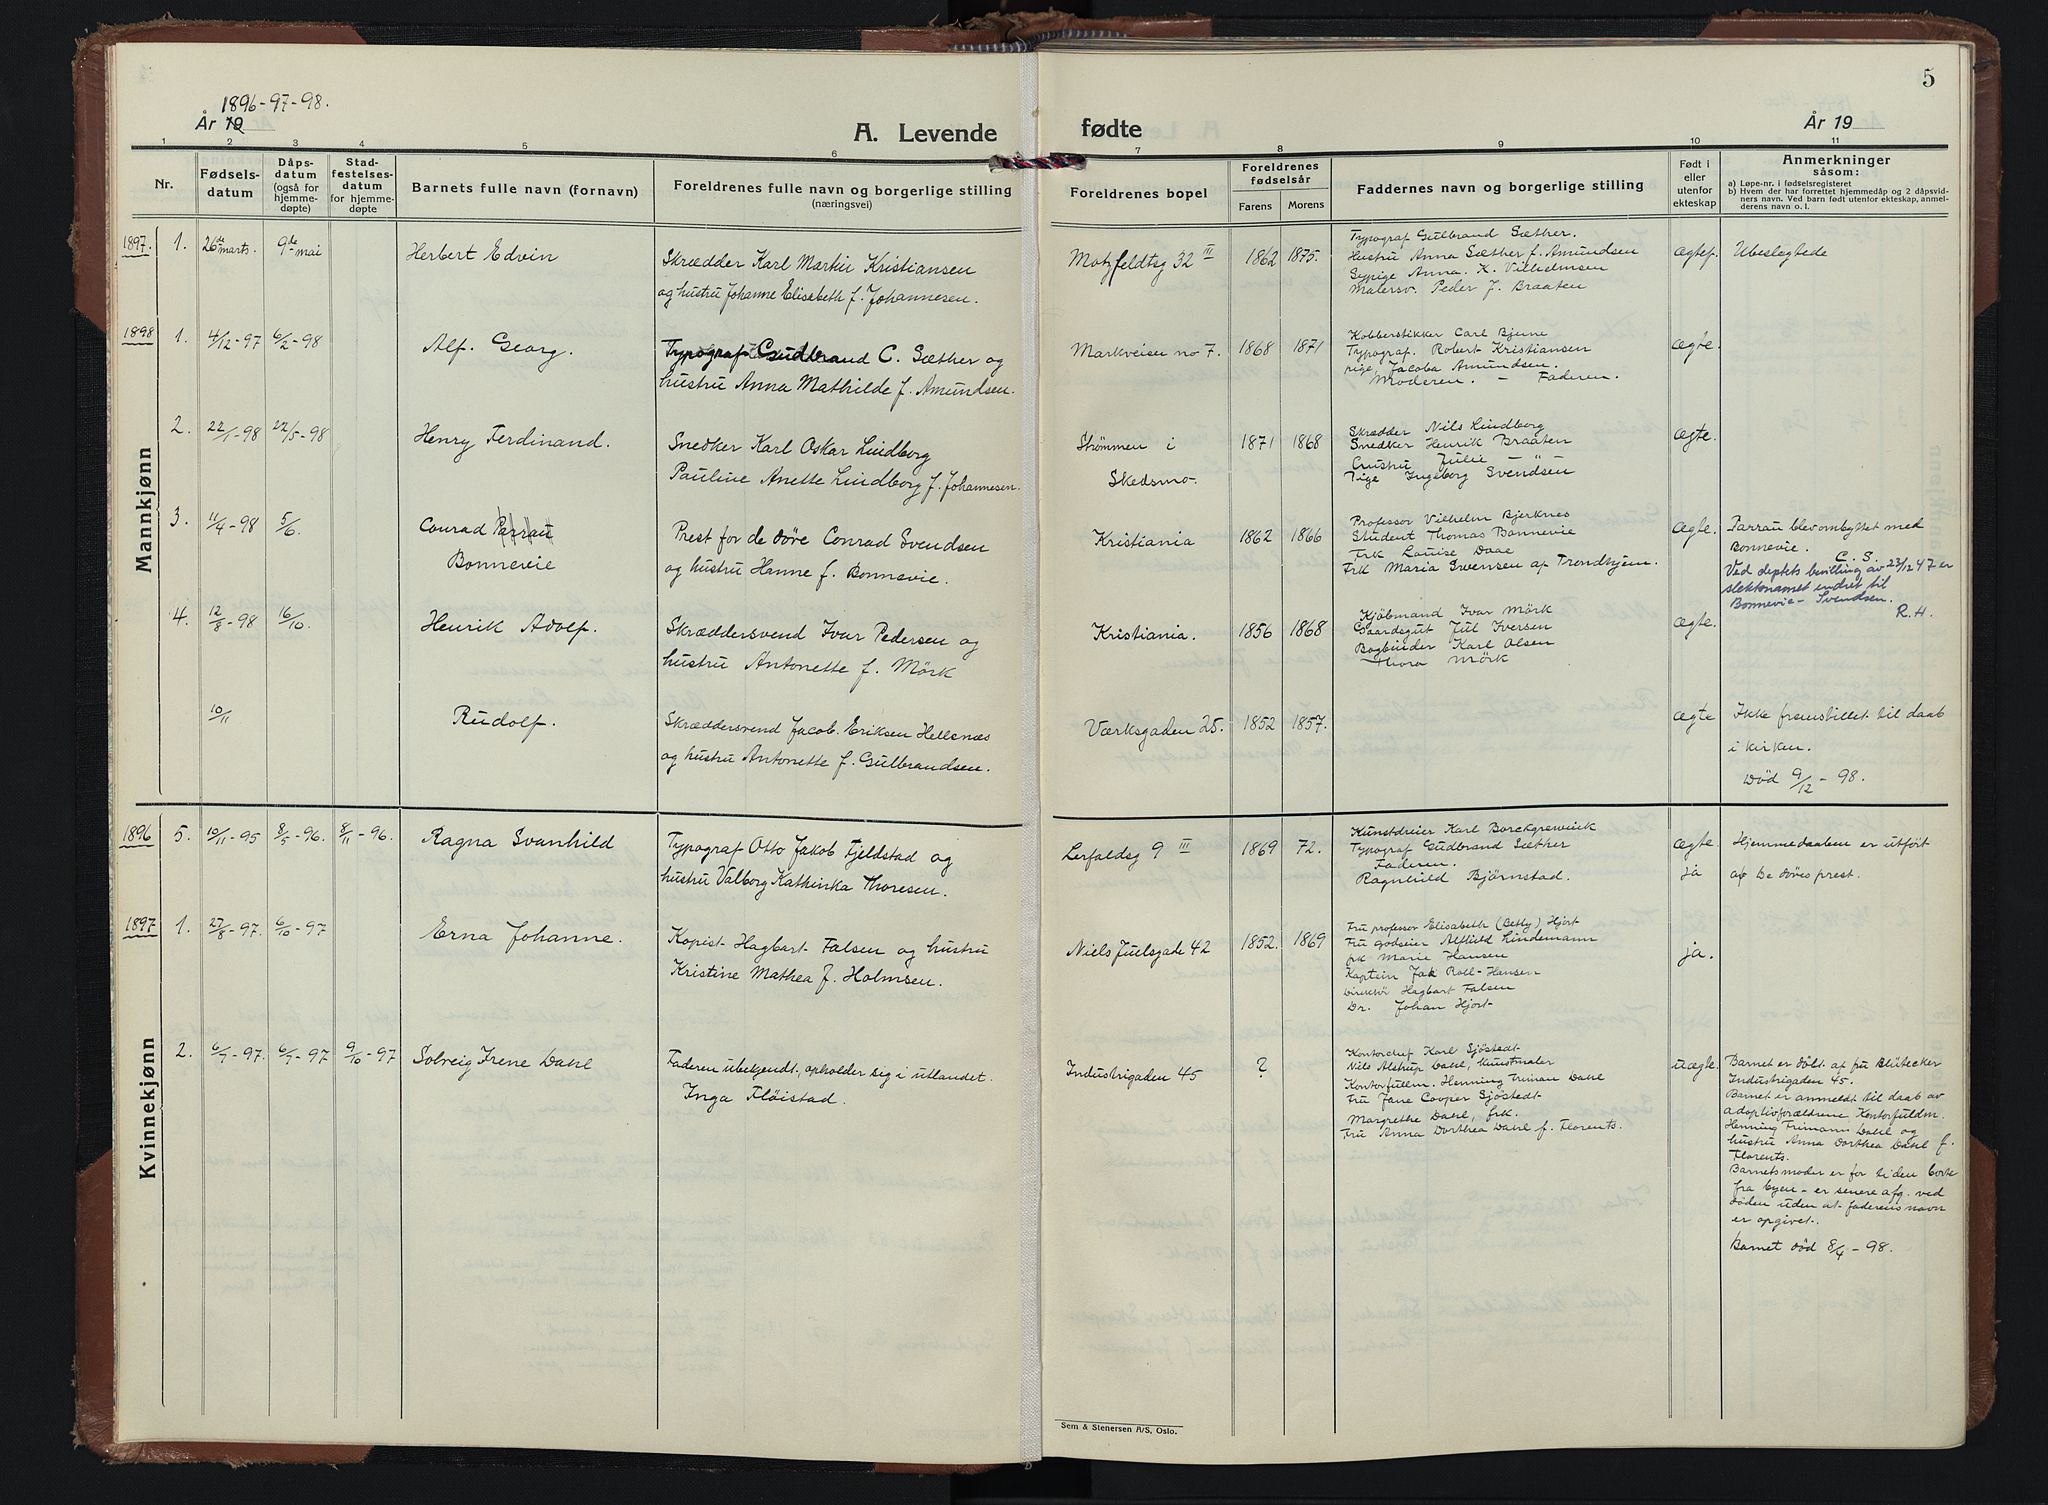 1896-97-98.
År 19
A. Levende
1 2 3 4 5 6
Nr.
Fødsels-
datum
Dåps-
datum
(også for
hjemme-
døpte)
Stad-
festelses-
datum
for hjemme-
døpte
Barnets fulle navn (fornavn)
Foreldrenes fulle navn og borgerlige stilling
(næringsvei)
5
fødte
År 19
7 8 9 10 11
Foreldrenes bopel
Foreldrenes
fødselsår
Farens Morens
Faddernes navn og borgerlige stilling
Født i
eller
utenfor
ekteskap
Anmerkninger
såsom:
a) Løpe-nr. i fødselsregisteret
b) Hvem der har forrettet hjemmedåp og 2 dåpsvid-
ners navn. Ved barn født utenfor ekteskap, anmel-
derens navn o. l.
Mannkjønn
1897. 1. 26de marts. 9de mai
Herbert Edvin
Skrædder Karl Martin Kristiansen
og hustru Johanne Elisabeth f. Johannesen.
Motzfeldtsg 32 III
1862 1875.
Typograf Gulbrand Sæther.
Hustru Anna Sæther f. Amundsen
Sypige Anna. K. Vilhelmsen
Malersv. Peder J. Braaten
ægtef.
Ubeslegtede
1898 1. 4/12-97 6/2-98
Alf. Georg.
Typograf Gudbrand C. Sæther og
hustru Anna Mathilde f. Amundsen.
Markveien no 7.
1868 1871
Kobberstikker Carl Bjune
Typograf. Robert Kristiansen
pige, Jacoba Amundsen.
Moderen. - Faderen.
ægte.
2. 22/1-98 22/5-98
Henry Ferdinand.
Snedker Karl Oskar Lindborg
Pauline Anette Lindborg f. Johannesen.
Strømmen i
Skedsmo.
1871 1868
Skrædder Nils Lindborg
Snedker Henrik Braaten
Hustru Julie — " —
Pige Ingeborg Svendsen
ægte.
3. 11/4-98 5/6.
Conrad Parrau
Bonnevie
Prest for de døve Conrad Svendsen
og hustru Hanne f. Bonnevie.
Kristiania
1862 1866
Professor Vilhelm Bjerknes
Student Thomas Bonnevie
Frk Louise Daae
Frk Maria Svensen af Trondhjem.
ægte.
Parrau blev ombyttet med
Bonnevie.
C. S.
Ved deptets bevilling av 23/12 47 er
slektsnamet endret til
Bonnevie-Svendsen.
R.H.
4. 12/8-98 16/10.
Henrik Adolf.
Skræddersvend Ivar Pedersen og
hustru Antonette f. Mörk
Kristiania.
1856 1868
Kjöbmand Ivar Mörk
Gaardsgut Jul Iversen
Bogbinder Karl Olsen
Thora Mörk
ægte.
10/11
Rudolf.
Skræddersvend Jacob. Eriksen Hellsnæs
og hustru Antonette f. Gulbrandsen.
Værksgaden 25.
1852 1857.
ægte
Ikke fremstillet til daab
i kirken.
Död 9/12-98.
Kvinnekjønn
1896 5. 10/11-95 8/5-96. 8/11-96.
Ragna Svanhild
Typograf Otto Jakob Fjeldstad og
hustru Valborg Kathinka Thoresen.
Lerfaldsg 9 III
1869 72.
Kunstdreier Karl Borckgrewink
Typograf Gudbrand Sæther
Faderen.
Ragnhild Bjørnstad.
ægte.
ja
Hjemmedaaben er utført
af De døves prest.
1897 1. 27/8-97. 6/10-97
Erna Johanne.
Kopist Hagbart Falsen og hustru
Kristine Mathea f. Holmsen.
Niels Juulsgade 42
1852. 1869
Fru professor Elisabeth (Betty) Hjort
Fru godseier Alfhild Lindemann
frk Marie Hansen
Kaptein Jak Roll-Hansen
Direktör Hagbart Falsen
Dr. Johan Hjort
ja.
2. 6/7-97. 6/7-97 9/10-97
Solveig Irene Dahl
Faderen ubekjendt, opholder sig i utlandet.
Inga Flöistad.
Industrigaden 45
?
Kontorchef Karl Sjöstedt
Nils Alstrup Dahl, Kunstmaler
Kontorfullm. Henning Friman Dahl
Fru Jane Cooper Sjöstedt
Margrethe Dahl, frk.
Fru Anna Dorthea Dahl f. Florents.
uægte.
Barnet er döbt af fru Blütecker
Industrigaden 45.
Barnet er anmeldt til daab av
adoptivforældrene Kontorfuldm.
Henning Frimann Dahl og
hustru Anna Dorthea Dahl f.
Florents.
Barnets moder er for tiden borte
fra byen - er senere afg. ved
döden uden at faderens navn
er opgivet.
Barnet död 8/4-98.
Sem & Stenersen A/S, Oslo.